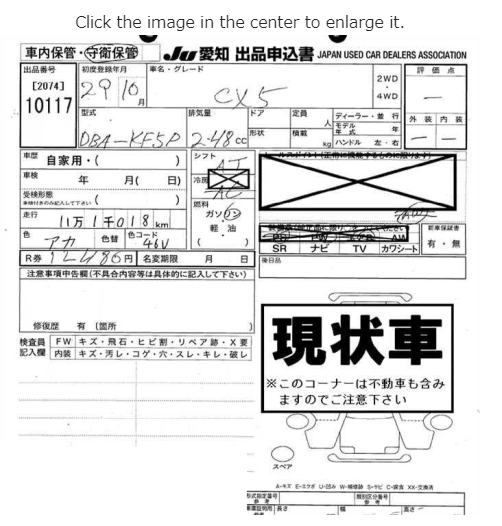 Click the image in the center to enlarge it.
車内保管・守衛保管 Ju 愛知 出品申込書 JAPAN USED CAR DEALERS ASSOCIATION
出品番号 初度登録年月 車名・グレード 評価点
[2074] 29 10月 CX5 2WD・4WD —
10117
型式 排気量 ドア 定員 人 ディーラー・並行 外装 内装
DBA-KF5P 2.48cc 形状 積載 kg モデル年式 年 — —
ハンドル 左・右
車歴 自家用・( ) シフト AT
車検 年 月( 日) 冷房 AC
受検形態
車検付きのみ記入して下さい ( )
走行 11万1千018km 燃料 ガソリン・軽油・( )
色 アカ 色替 色コード 46V
R券 12486円 名変期限 月 日
SR ナビ TV カワシート
新車保証書
有・無
注意事項申告欄(不具合内容等は具体的に記入して下さい) 後日品
修復歴 有 〔箇所 〕
検査員記入欄 FW キズ・飛石・ヒビ割・リペア跡・X要
内装 キズ・汚レ・コゲ・穴・スレ・キレ・破レ
現状車
※このコーナーは不動車も含みますのでご注意下さい
スペア
A-キズ E-エクボ U-凹み W-補修跡 S-サビ C-腐食 XX-交換済
型式指定番号 類別区分番号
参考 参考
長さ 幅 高さ